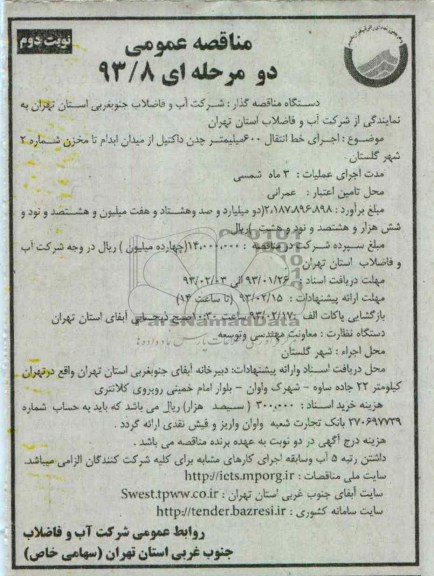 نوبت دوم
مناقصه عمومی
دو مرحله ای ۹۳/۸
دستگاه مناقصه گذار : شرکت آب و فاضلاب جنوبغربی استان تهران به
نمایندگی از شرکت آب و فاضلاب استان تهران
موضوع : اجرای خط انتقال ۶۰۰میلیمتر چدن داکتیل از میدان ابدام تا مخزن شماره ۲
شهر گلستان
مدت اجرای عملیات : ۳ ماه شمسی
محل تامین اعتبار : عمرانی
مبلغ برآورد : ۲،۱۸۷،۸۹۶،۸۹۸(دو میلیارد و صد وهشتاد و هفت میلیون و هشتصد و نود و
شش هزار و هشتصد و نود و هشت )ریال
مبلغ سپرده شرکت در مناقصه : ۱۴،۰۰۰،۰۰۰(چهارده میلیون ) ریال در وجه شرکت آب
و فاضلاب استان تهران
مهلت دریافت اسناد : ۹۳/۰۱/۲۶ الی ۹۳/۰۲/۰۳
مهلت ارائه پیشنهادات : ۹۳/۰۲/۱۵ (تا ساعت ۱۴)
بازگشایی پاکات الف : ۹۳/۰۲/۱۷ ساعت ۱۰:۳۰صبح درمحل آبفای استان تهران
دستگاه نظارت : معاونت مهندسی وتوسعه
محل اجراء : شهر گلستان
محل دریافت اسناد وارائه پیشنهادات: دبیرخانه آبفای جنوبغربی استان تهران واقع درتهران
کیلومتر ۲۲ جاده ساوه - شهرک واوان - بلوار امام خمینی روبروی کلانتری
هزینه خرید اسناد : ۳۰۰,۰۰۰ ( سیصد هزار) ریال می باشد که باید به حساب شماره
۲۷۰۶۹۷۷۳۹ بانک تجارت شعبه واوان واریز و فیش نقدی ارائه گردد .
هزینه درج آگهی در دو نوبت به عهده برنده مناقصه می باشد .
داشتن رتبه ۵ آب وسابقه اجرای کارهای مشابه برای کلیه شرکت کنندگان الزامی میباشد.
سایت ملی مناقصات : http://iets.mporg.ir
سایت آبفای جنوب غربی استان تهران : Swest.tpww.co.ir
سایت سامانه کشوری : http://tender.bazresi.ir
روابط عمومی شرکت آب و فاضلاب
جنوب غربی استان تهران (سهامی خاص)
ParsNamadData